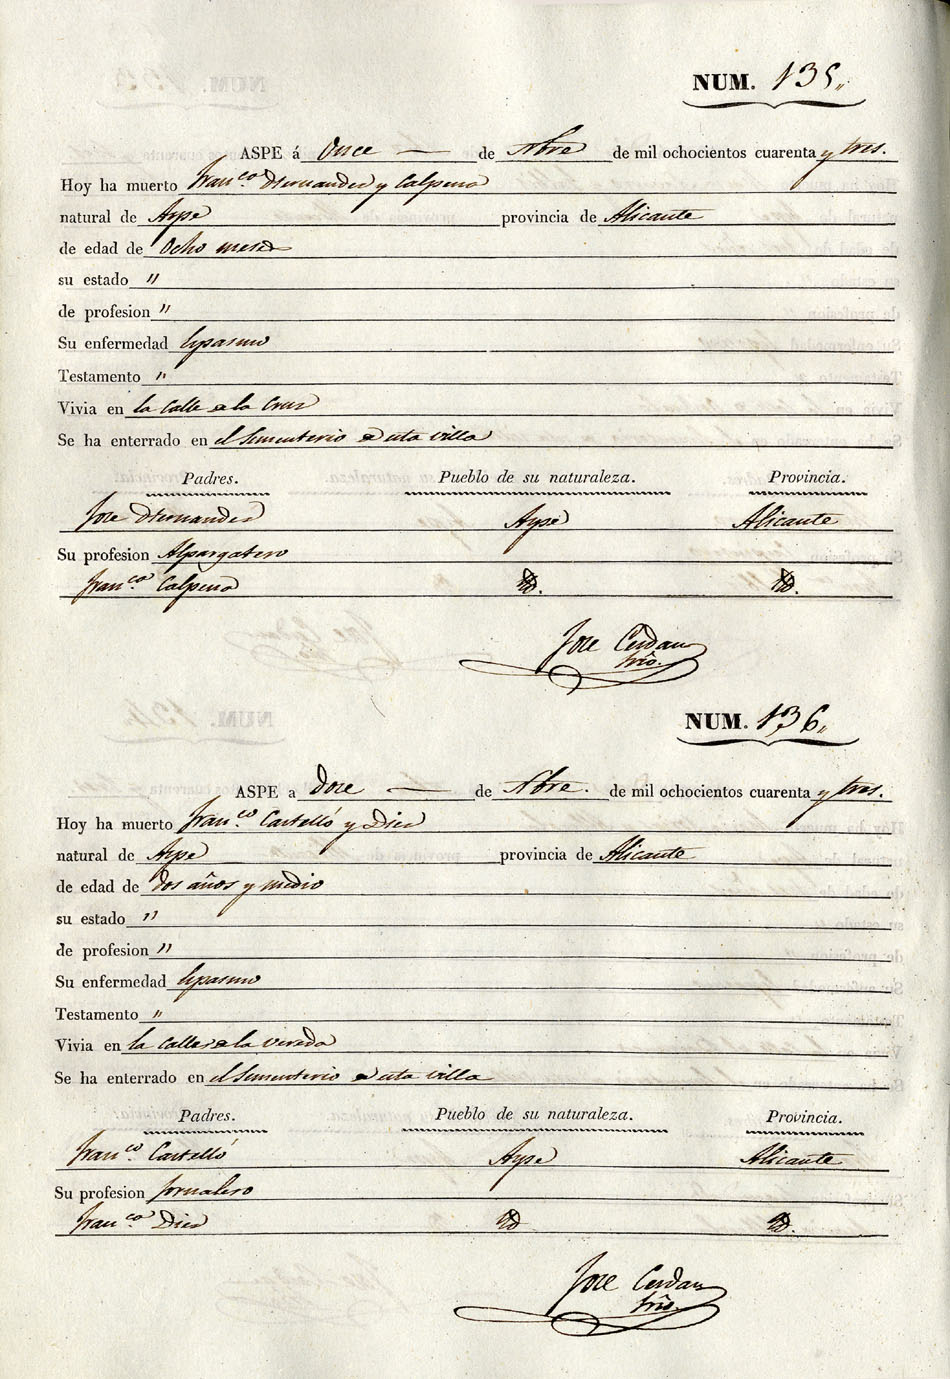 NUM. 135„
ASPE á Once — de Nbre de mil ochocientos cuarenta y tres.
Hoy ha muerto Fran.co Hernandez y Calpena
natural de Aspe provincia de Alicante
de edad de Ocho meses
su estado "
de profesion "
Su enfermedad Espasmo
Testamento "
Vivia en la Calle de la Cruz
Se ha enterrado en el Sementerio de esta villa
Padres. Pueblo de su naturaleza. Provincia.
Jose Hernandez Aspe Alicante
Su profesion Alpargatero
Fran.ca Calpena Id. Id.
Jose Cerdan
NUM. 136„
ASPE a Doce — de Nbre. de mil ochocientos cuarenta y tres.
Hoy ha muerto Fran.co Castelló y Diez
natural de Aspe provincia de Alicante
de edad de dos años y medio
su estado "
de profesion "
Su enfermedad Espasmo
Testamento "
Vivia en la Calle de la Vereda
Se ha enterrado en el Sementerio de esta villa
Padres. Pueblo de su naturaleza. Provincia.
Fran.co Castelló Aspe Alicante
Su profesion Jornalero
Fran.ca Diez Id Id.
Jose Cerdan